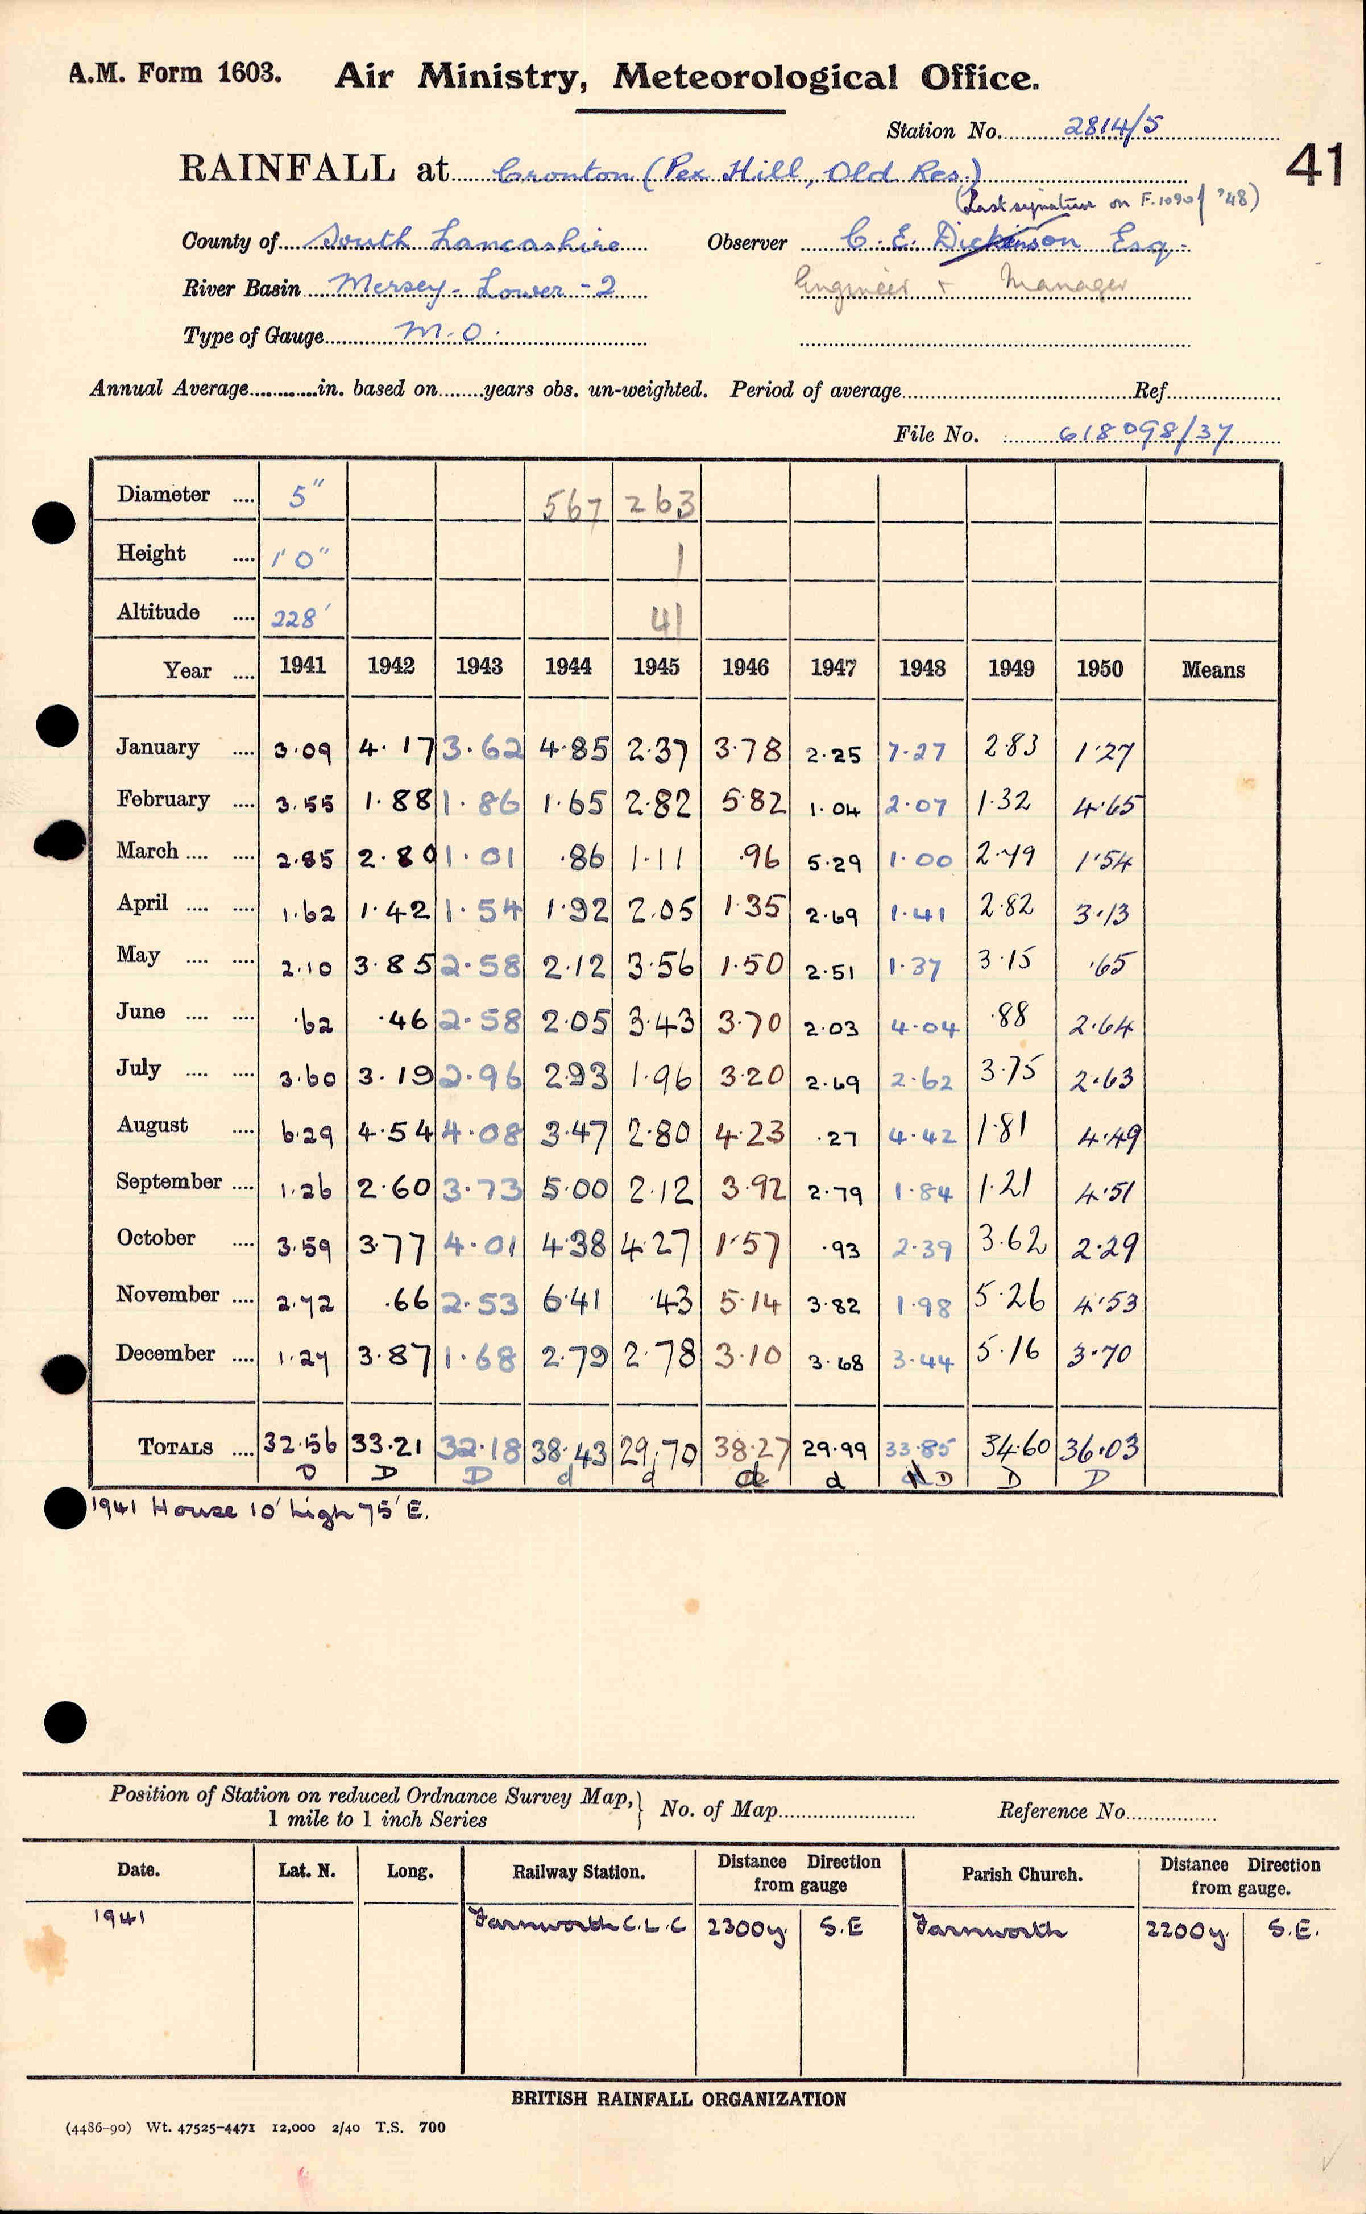 A.M. Form 1603. Air Ministry, Meteorological Office.
Station No. 2814/5
41
RAINFALL at Cronton (Pex Hill, Old Res.)
(Last signature on F.1090f '48)
County of South Lancashire Observer C. E. Dickinson Esq.
River Basin Mersey - Lower - 2 Engineer + Manager
Type of Gauge M.O.
Annual Average in. based on years obs. un-weighted. Period of average Ref.
File No. 618098/37
Diameter .... 5" 567 263
Height .... 1'0" 1
Altitude .... 228' 41
Year .... 1941 1942 1943 1944 1945 1946 1947 1948 1949 1950 Means
January .... 3.09 4.17 3.62 4.85 2.37 3.78 2.25 7.27 2.83 1.27
February .... 3.55 1.88 1.86 1.65 2.82 5.82 1.04 2.07 1.32 4.65
March .... .... 2.85 2.80 1.01 .86 1.11 .96 5.29 1.00 2.79 1.54
April .... .... 1.62 1.42 1.54 1.92 2.05 1.35 2.69 1.41 2.82 3.13
May .... .... 2.10 3.85 2.58 2.12 3.56 1.50 2.51 1.37 3.15 .65
June .... .... .62 .46 2.58 2.05 3.43 3.70 2.03 4.04 .88 2.64
July .... .... 3.60 3.19 2.96 2.93 1.96 3.20 2.69 2.62 3.75 2.63
August .... 6.29 4.54 4.08 3.47 2.80 4.23 .27 4.42 1.81 4.49
September .... 1.26 2.60 3.73 5.00 2.12 3.92 2.79 1.84 1.21 4.51
October .... 3.59 3.77 4.01 4.38 4.27 1.57 .93 2.39 3.62 2.29
November .... 2.72 .66 2.53 6.41 .43 5.14 3.82 1.98 5.26 4.53
December .... 1.27 3.87 1.68 2.79 2.78 3.10 3.68 3.44 5.16 3.70
TOTALS .... 32.56 33.21 32.18 38.43 29.70 38.27 29.99 33.85 34.60 36.03
D D D d d d d D D D
1941 House 10' high 75' E.
Position of Station on reduced Ordnance Survey Map, 1 mile to 1 inch Series } No. of Map Reference No.
Date. Lat. N. Long. Railway Station. Distance Direction from gauge Parish Church. Distance Direction from gauge.
1941 Farnworth C.L.C 2300y. S.E Farnworth 2200y. S.E.
BRITISH RAINFALL ORGANIZATION
(4486-90) Wt. 47525-4471 12,000 2/40 T.S. 700